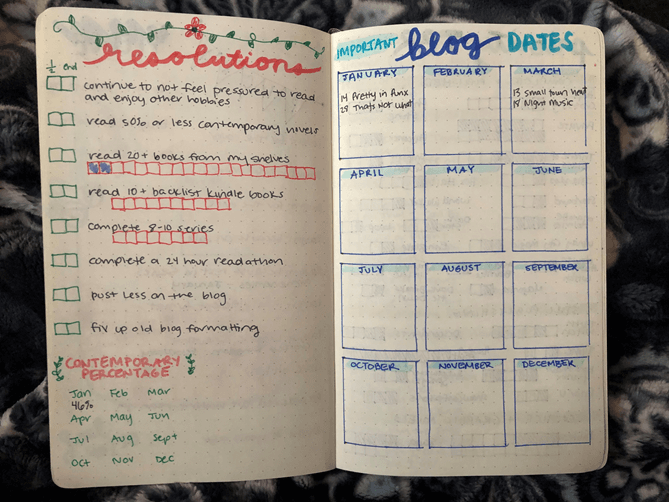 resolutions
1/2 end
continue to not feel pressured to read
and enjoy other hobbies
read 50% or less contemporary novels
read 20+ books from my shelves
read 10+ backlist kindle books
complete 8-10 series
complete a 24 hour readathon
post less on the blog
fix up old blog formatting
CONTEMPORARY
PERCENTAGE
Jan Feb Mar
46%
Apr May Jun
Jul Aug Sept
Oct Nov Dec
IMPORTANT blog DATES
JANUARY FEBRUARY MARCH
14 Pretty in Punx
28 Thats Not What
13 Small Town Heat
18 Night Music
APRIL MAY JUNE
JULY AUGUST SEPTEMBER
OCTOBER NOVEMBER DECEMBER